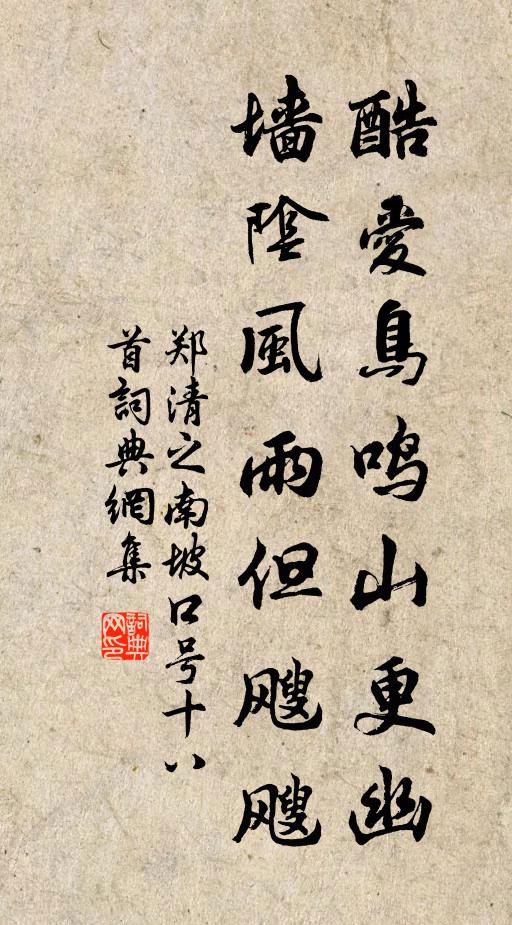 酷愛鳥鸣山更幽
墙陰風雨但飕飕
郑清之南坡口号十八
首詞典網集
詞典
网印